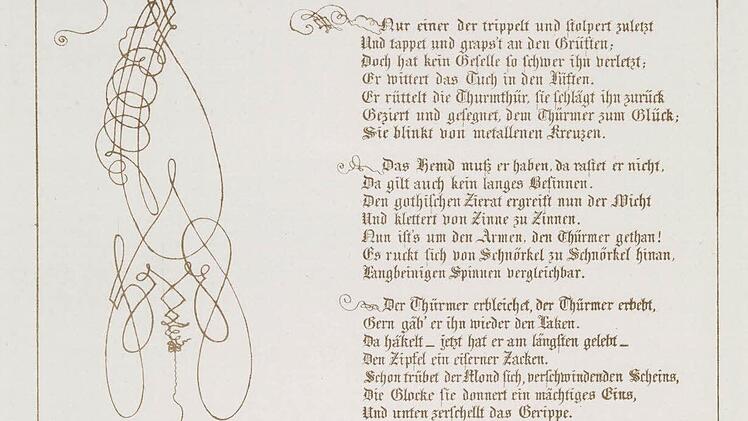 Nur einer der trippelt und stolpert zuletzt
Und tappet und grapst an den Grüften;
Doch hat kein Geselle so schwer ihn verletzt;
Er wittert das Tuch in den Lüften.
Er rüttelt die Thurmthür, sie schlägt ihn zurück
Geziert und gesegnet, dem Thürmer zum Glück;
Sie blinkt von metallenen Kreuzen.
Das Hemd muß er haben, da rastet er nicht,
Da gilt auch kein langes Besinnen.
Den gothischen Zierat ergreift nun der Wicht
Und klettert von Zinne zu Zinnen.
Nun ist's um den Armen, den Thürmer gethan!
Es ruckt sich von Schnörkel zu Schnörkel hinan,
Langbeinigen Spinnen vergleichbar.
Der Thürmer erbleichet, der Thürmer erbebt,
Gern gäb' er ihn wieder den Laken.
Da häkelt – jetzt hat er am längsten gelebt –
Den Zipfel ein eiserner Zacken.
Schon trübet der Mond sich, verschwindenden Scheins,
Die Glocke sie donnert ein mächtiges Eins,
Und unten zerschellt das Gerippe.